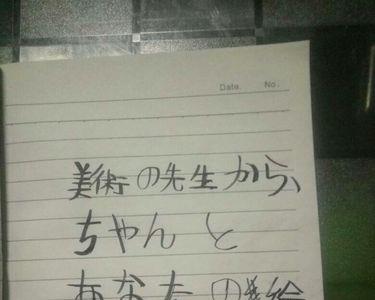 Date. No.
美術の先生から、
ちゃんと
あなたの美絵